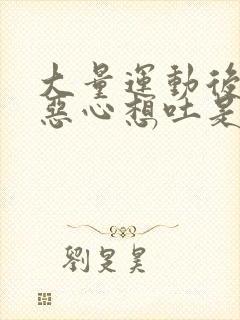 大量運動後
惡心想吐是
劉是昊